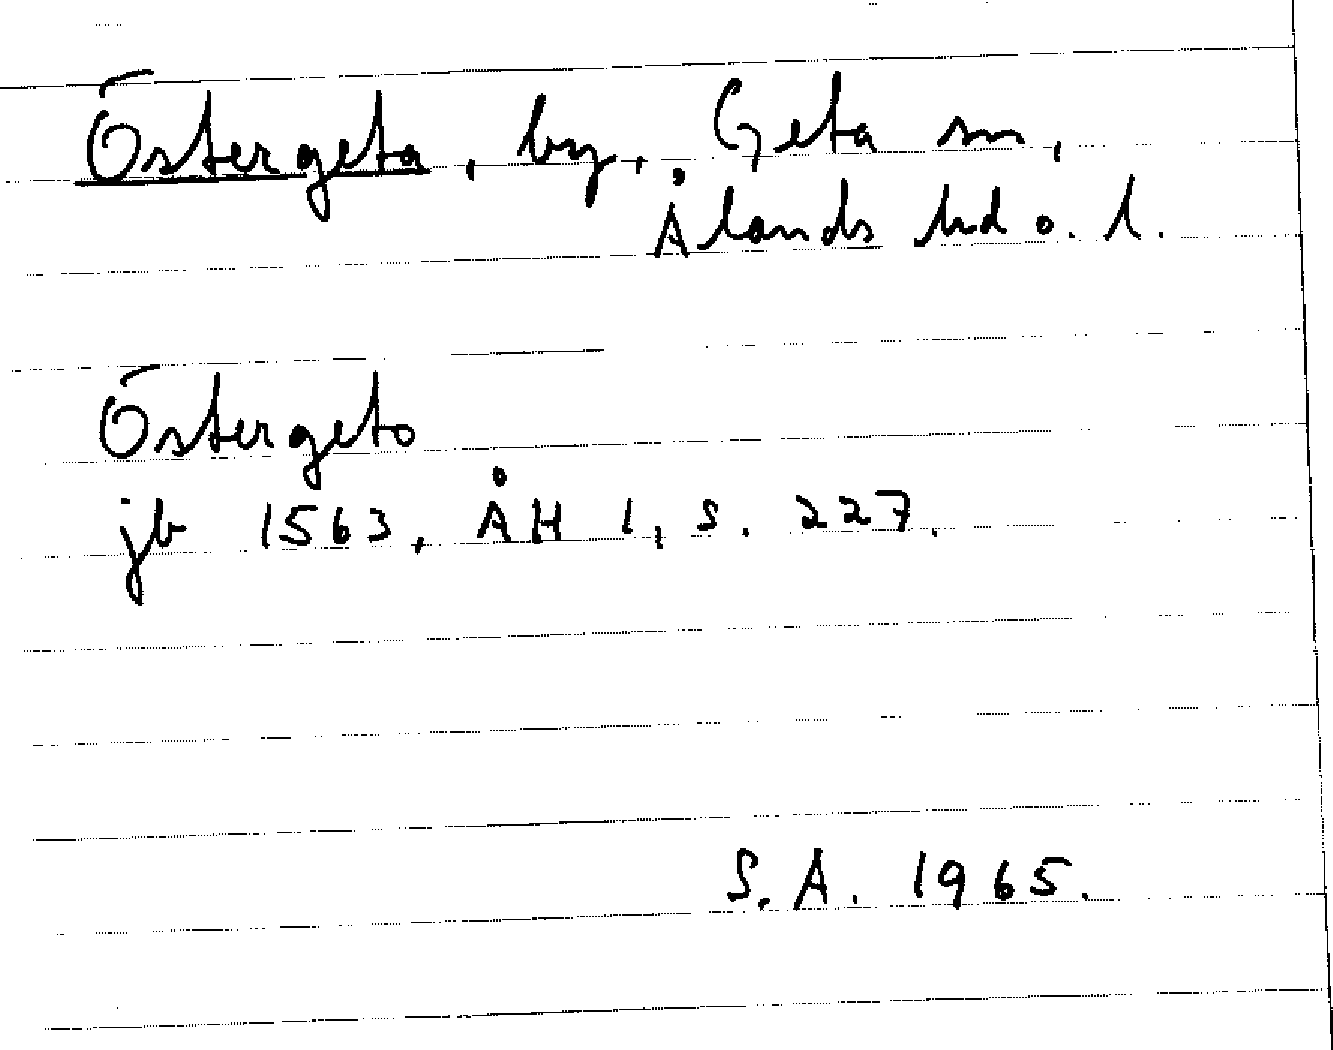 Östergeta, by, Geta sn,
Ålands hd o. l.
Östergeto
jb 1563, ÅH 1, s. 227.
S.A. 1965.